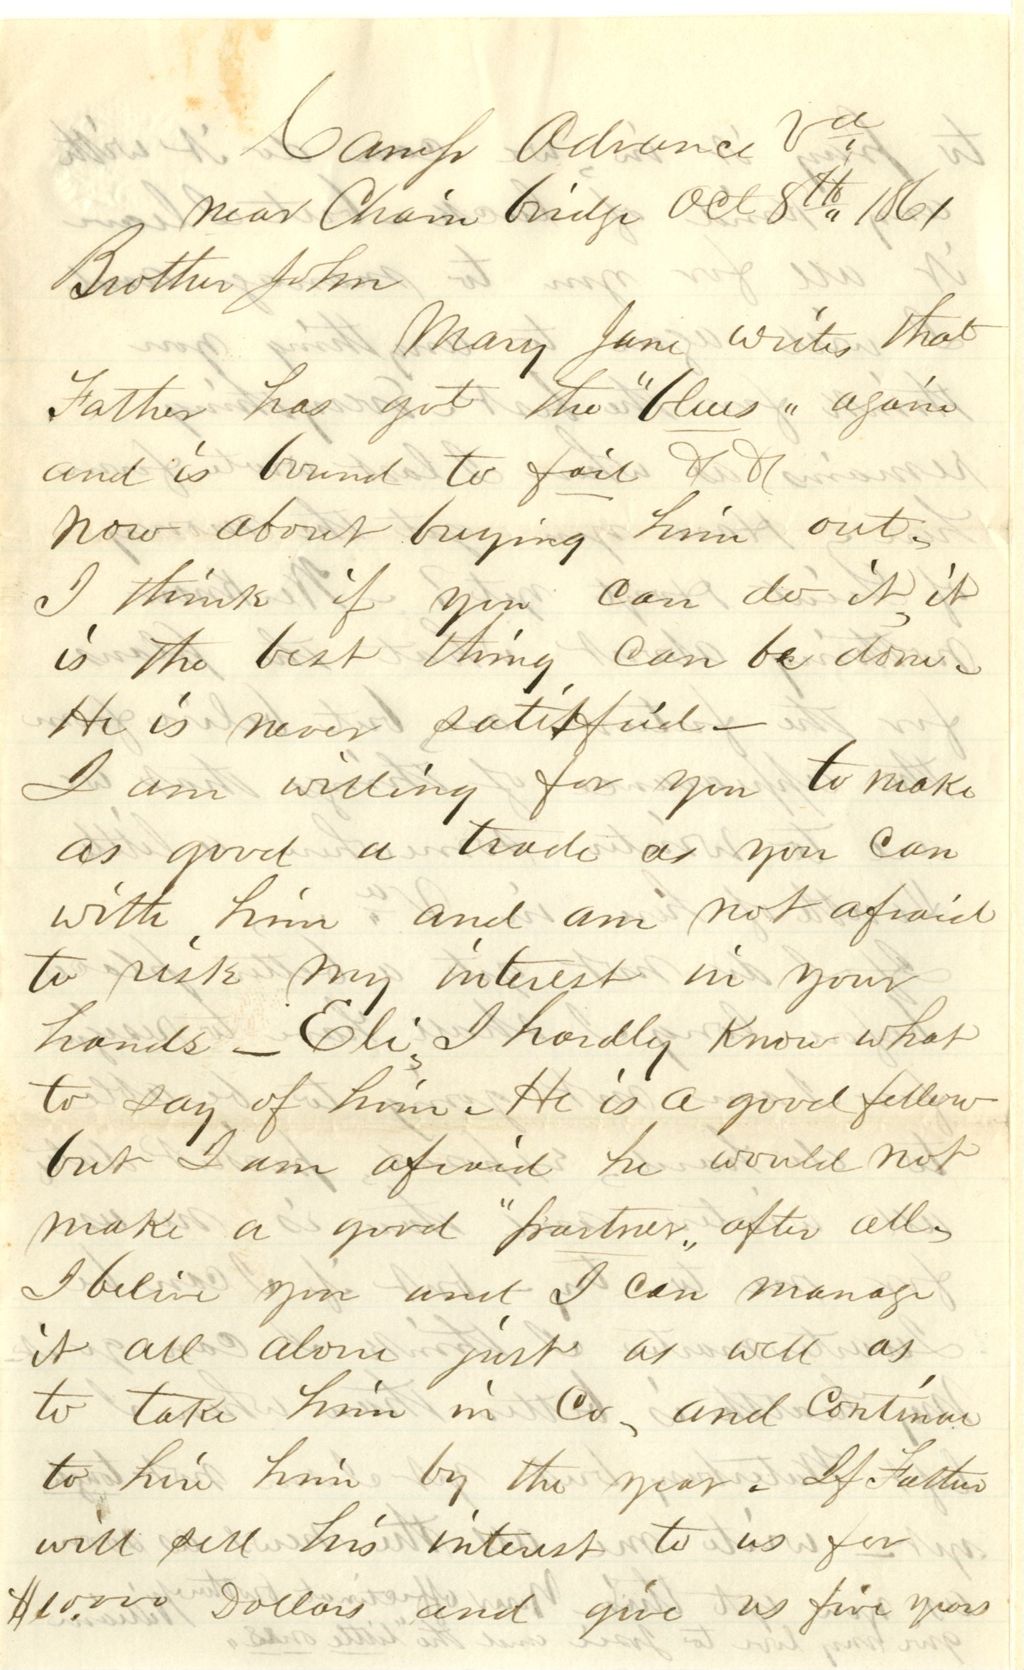 Camp Advance Va
near Chain bridge Oct 8th 1861
Brother John
Mary Jane writes that
Father has got the "blues" again
and is bound to fail &c &c
now about buying him out.
I think if you can do it, it
is the best thing can be done.
He is never satisfied —
I am willing for you to make
as good a trade as you can
with him and am not afraid
to risk my interest in your
hands — Eli, I hardly know what
to say of him. He is a good fellow
but I am afraid he would not
make a good "partner" after all.
I belive you and I can manage
it all alone just as well as
to take him in Co, and continue
to hire him by the year. If Father
will sell his interest to us for
$10,000 Dollars and give us five years